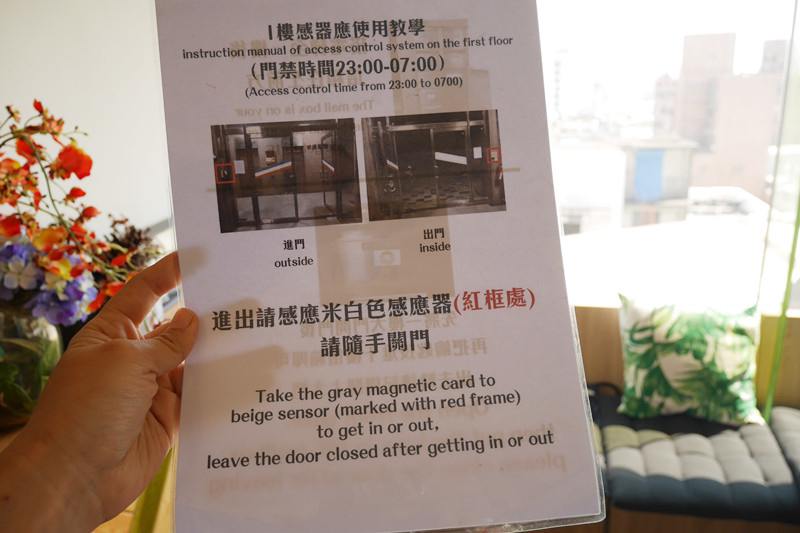 1樓感器應使用教學
instruction manual of access control system on the first floor
(門禁時間23:00-07:00)
(Access control time from 23:00 to 0700)
進門
outside
出門
inside
進出請感應米白色感應器(紅框處)
請隨手關門
Take the gray magnetic card to
beige sensor (marked with red frame)
to get in or out,
leave the door closed after getting in or out